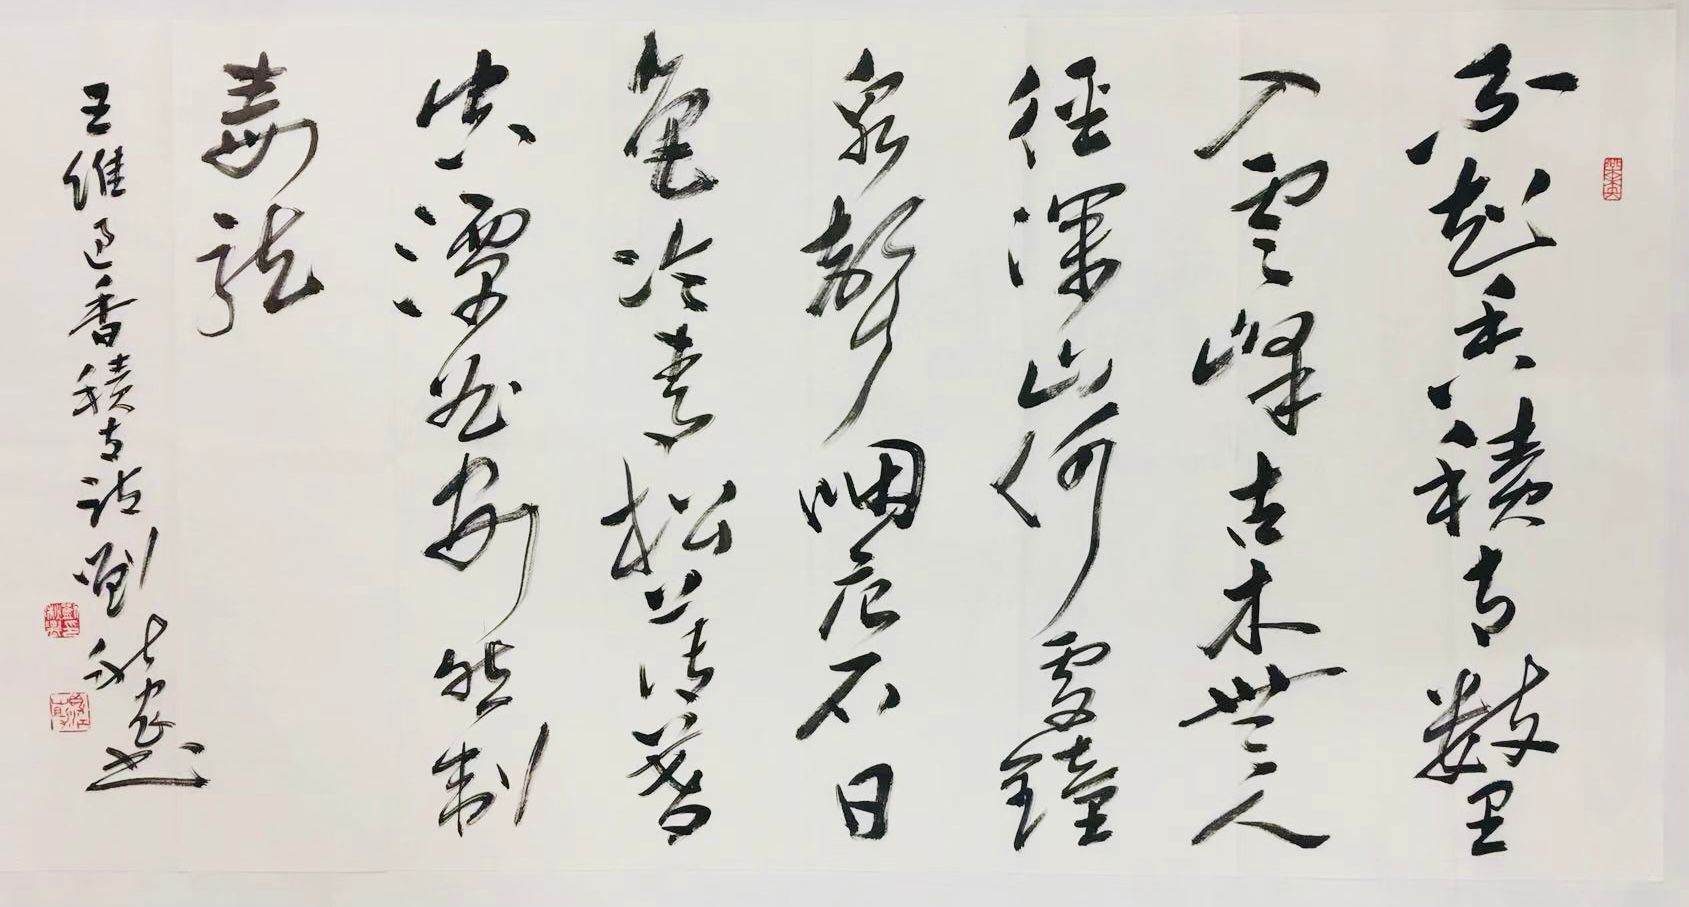 不知香積寺數里
入雲峰古木無人
徑深山何處鐘
泉聲咽危石日
色冷青松薄暮
空潭曲安禪制
毒龍
王維過香積寺詩劉秋書